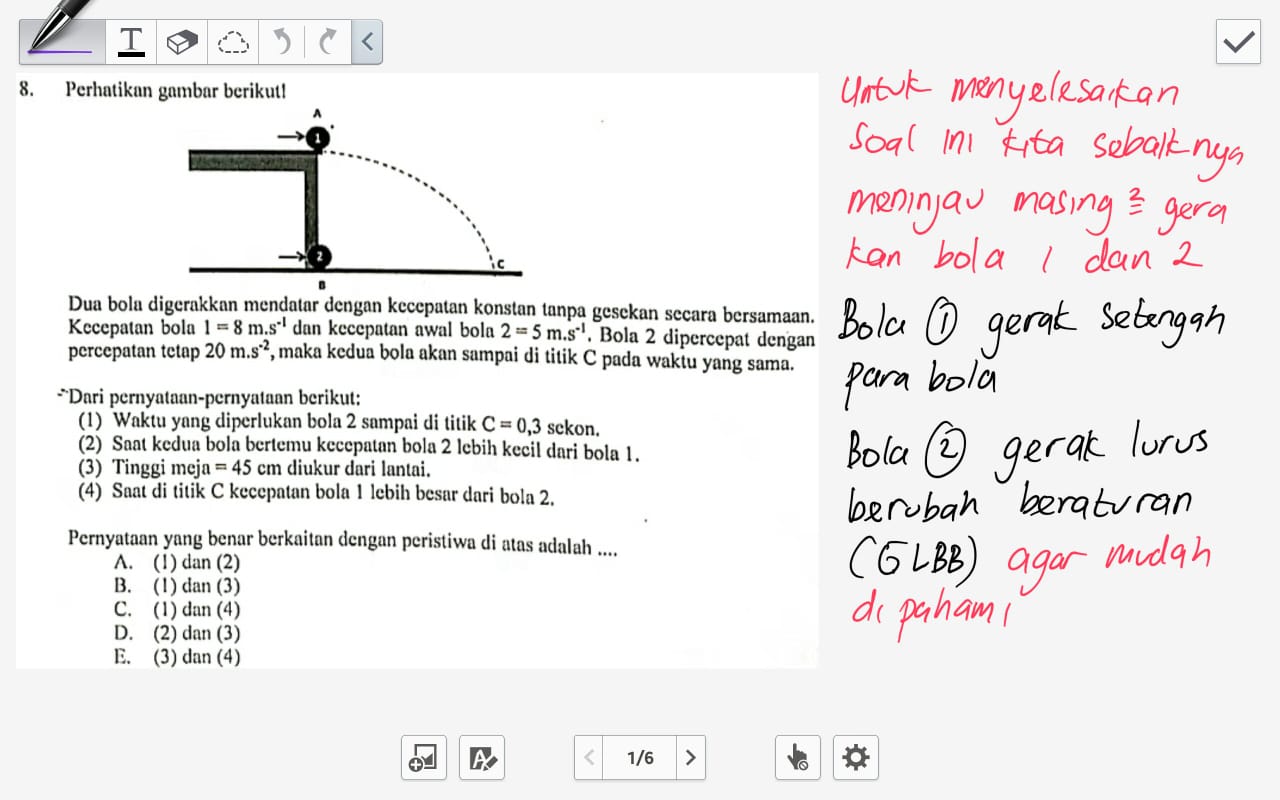 T
8. Perhatikan gambar berikut!
A
1
2
C
B
Dua bola digerakkan mendatar dengan kecepatan konstan tanpa gesekan secara bersamaan.
Kecepatan bola 1 = 8 m.s⁻¹ dan kecepatan awal bola 2 = 5 m.s⁻¹. Bola 2 dipercepat dengan
percepatan tetap 20 m.s⁻², maka kedua bola akan sampai di titik C pada waktu yang sama.
Dari pernyataan-pernyataan berikut:
(1) Waktu yang diperlukan bola 2 sampai di titik C = 0,3 sekon.
(2) Saat kedua bola bertemu kecepatan bola 2 lebih kecil dari bola 1.
(3) Tinggi meja = 45 cm diukur dari lantai.
(4) Saat di titik C kecepatan bola 1 lebih besar dari bola 2.
Pernyataan yang benar berkaitan dengan peristiwa di atas adalah ....
A. (1) dan (2)
B. (1) dan (3)
C. (1) dan (4)
D. (2) dan (3)
E. (3) dan (4)
Untuk menyelesaikan
Soal ini kita sebaiknya
meninjau masing ² gera
kan bola 1 dan 2
Bola ① gerak setengah
para bola
Bola ② gerak lurus
berubah beraturan
(GLBB) agar mudah
di pahami
A
1/6